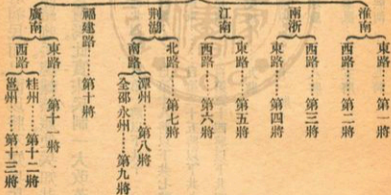 淮南
東路……第一將
西路……第二將
兩浙
西路……第三將
東路……第四將
江南
東路……第五將
西路……第六將
荆湖
北路……第七將
南路
潭州……第八將
全邵永州……第九將
福建路……第十將
廣南
東路……第十一將
西路
桂州……第十二將
邕州……第十三將